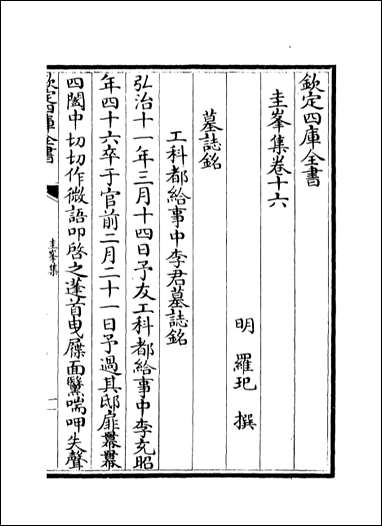 欽定四庫全書
圭峯集卷十六
明 羅玘 撰
墓誌銘
工科都給事中李君墓誌銘
弘治十一年三月十四日予友工科都給事中李充昭
年四十六卒于官前二月二十一日予過其邸扉纍纍
四闔中切切作微語叩啓之蓬首曳屧面黧喘呷失聲
欽定四庫全書
圭峯集
一